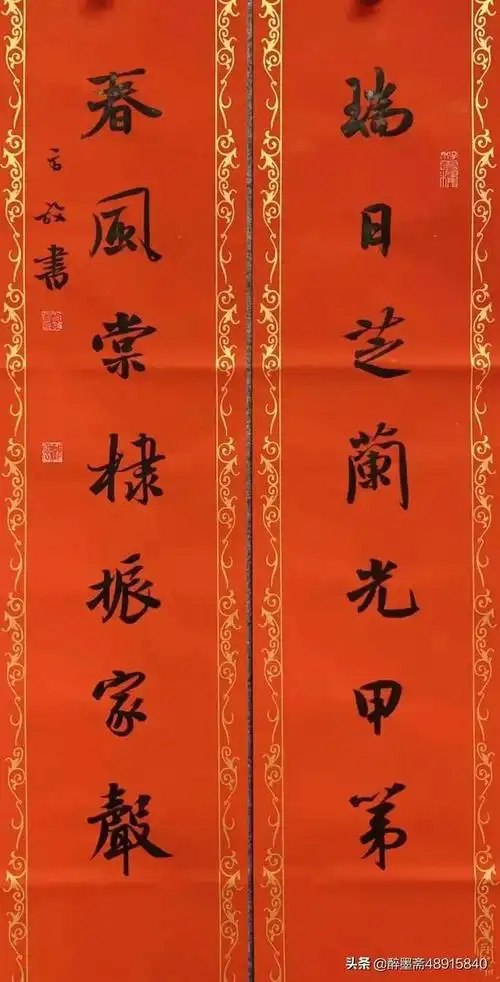 瑞日芝蘭光甲第
春風棠棣振家聲
书
头条 @醉墨斋48915840